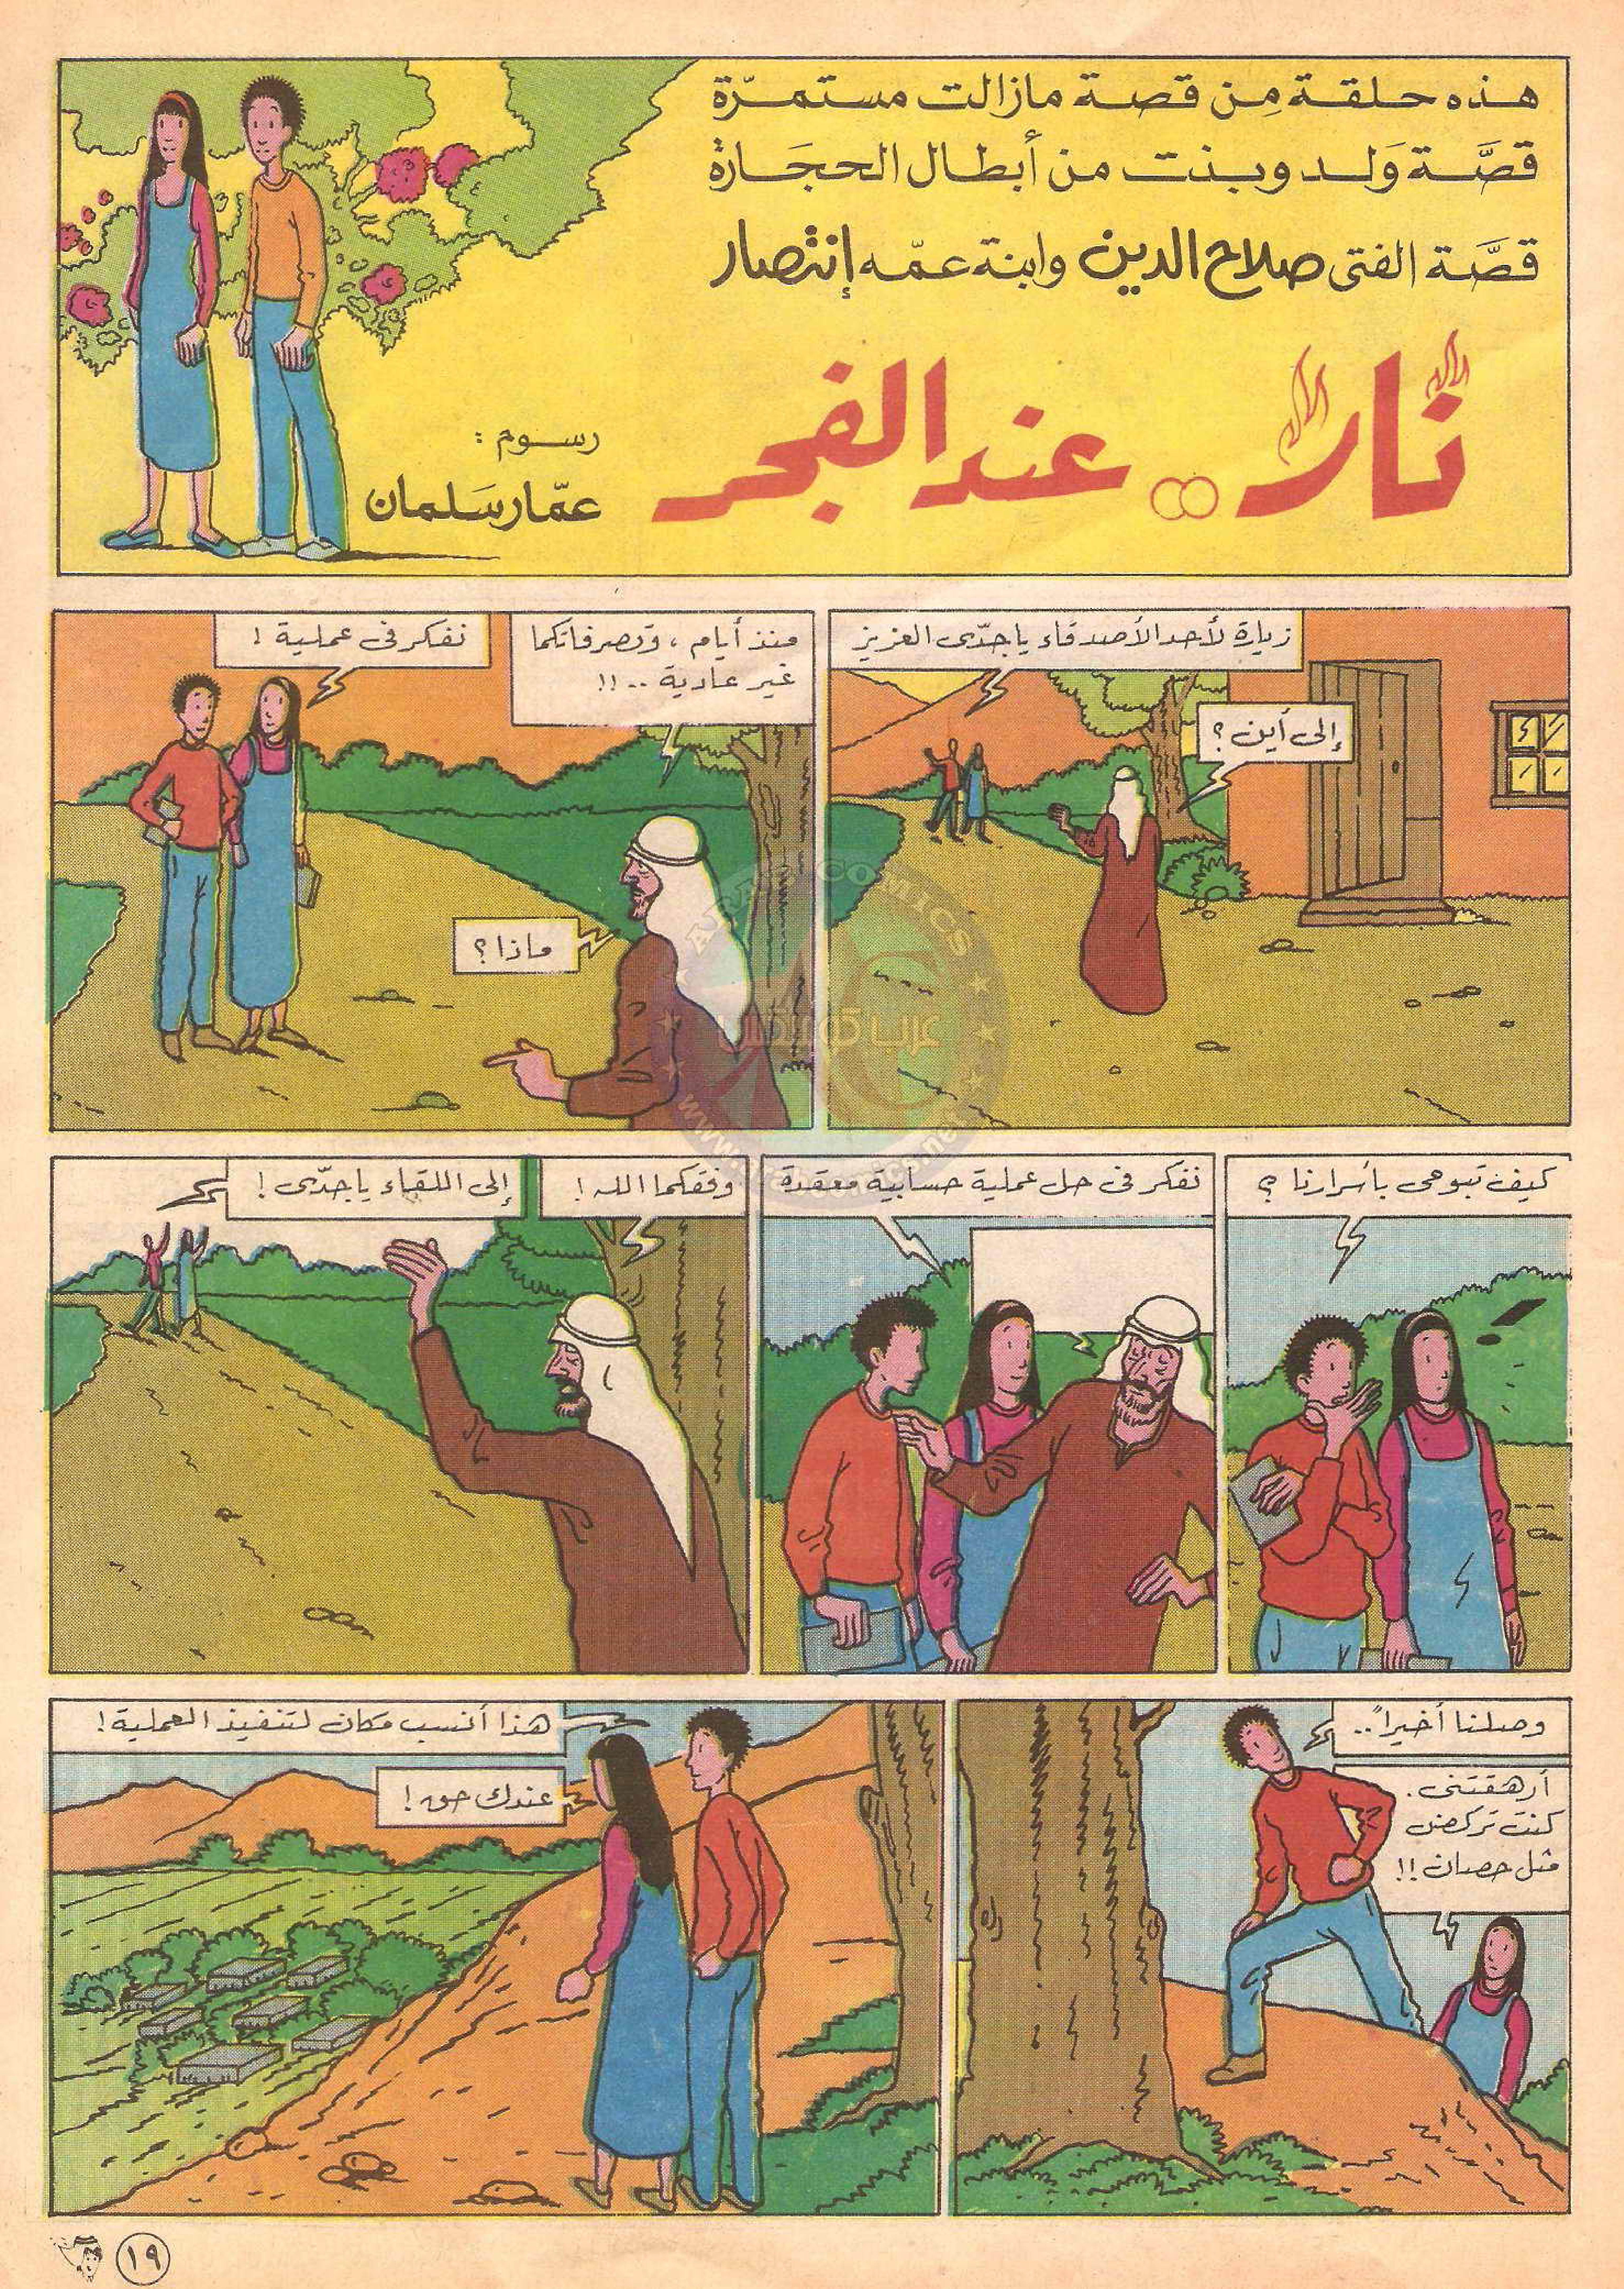 هذه حلقة مِن قصة مازالت مستمرّة
قصَّة وَلد وبنت من أبطال الحجَارة
قصَّة الفتى صلاح الدين وابنة عمّه إنتصار
نار.. عند الفجر
رسوم :
عمّار سَلمان
زيارة لأحد الأصدقاء يا جدّى العزيز
إلى أين ؟
منذ أيام ، وتصرفاتكما
غير عادية ..!!
نفكر فى عملية !
ماذا ؟
كيف تبوحى بأسرارنا ؟
نفكر فى حل عملية حسابية معقدة
وفقكما الله !
إلى اللقاء يا جدّى !
وصلنا أخيراً ..
أرهقتنى .
كنت تركض
مثل حصان !!
هذا أنسب مكان لتنفيذ العملية !
عندك حق !
١٩
ARAB COMICS
عرب كوميكس
www.arabcomics.net